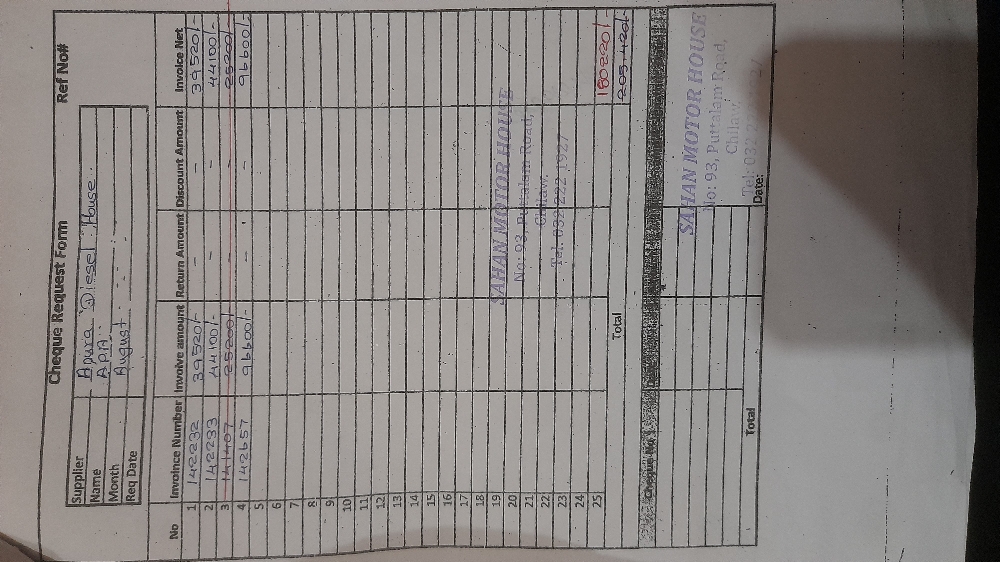 Cheque Request Form
Ref No#
Supplier Apura Diesel House
Name APA
Month August
Req Date
No Invoince Number Involve amount Return Amount Discount Amount Invoice Net
1 142232 39520/- - - 39520/-
2 142233 44100/- - - 44100/-
3 141407 25200/- - - 25200/-
4 142657 96600/- - - 96600/-
5
6
7
8
9
10
11
12
13
14
15
16
17
18
19
20
21
22
23
24
25
SAHAN MOTOR HOUSE
No: 93, Puttalam Road,
Chilaw.
Tel: 032 222 1927
180220/-
Total 205,420/-
Cheque No
SAHAN MOTOR HOUSE
No: 93, Puttalam Road,
Chilaw
Tel: 032
Total
Date: